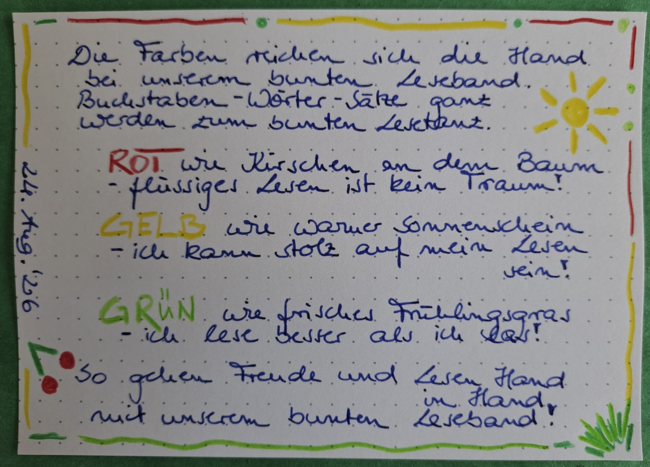 Die Farben reichen sich die Hand
bei unserem bunten Leseband.
Buchstaben - Wörter - Sätze ganz
werden zum bunten Lesetanz.
ROT wie Kirschen an dem Baum
- flüssiges Lesen ist kein Traum!
GELB wie warmer Sonnenschein
- ich kann stolz auf mein Lesen
sein!
GRÜN wie frisches Frühlingsgras
- ich lese besser als ich las!
So gehen Freude und Lesen Hand
in Hand
mit unserem bunten Leseband!
24. Aug. '26